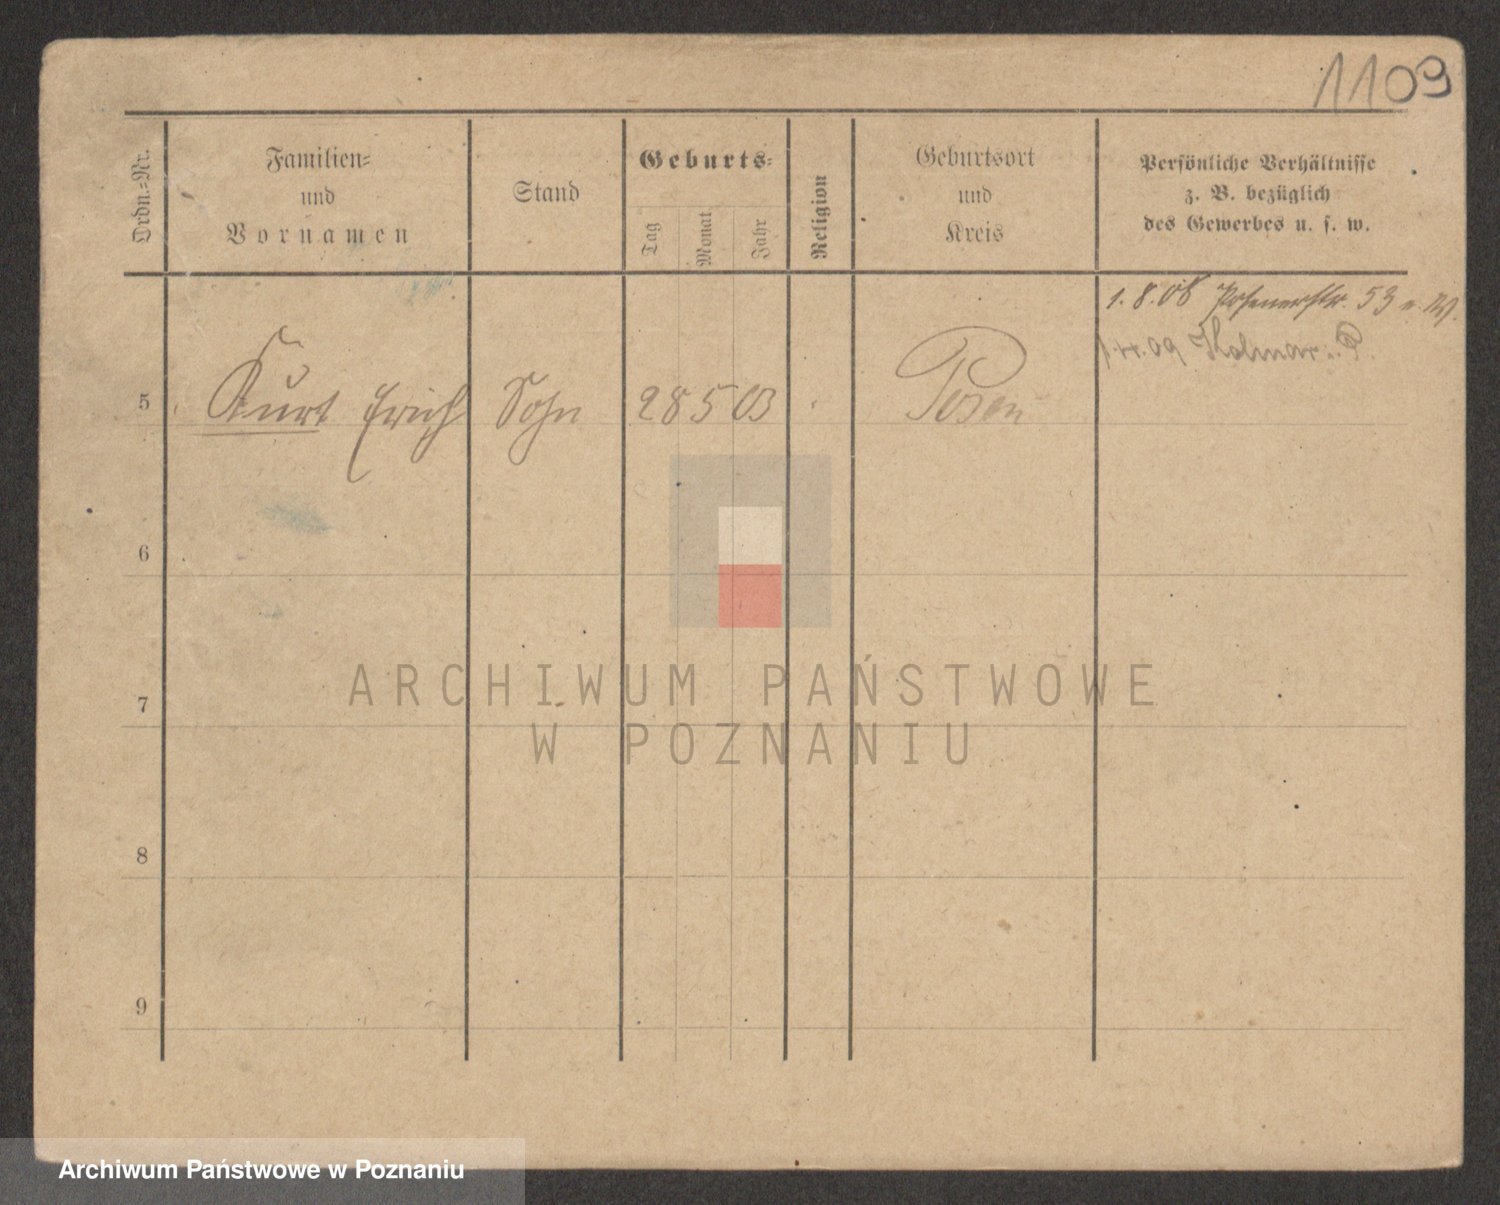 1109
Ordn.-Nr.
Familien-
und
Vornamen
Stand
Geburts-
Tag
Monat
Jahr
Religion
Geburtsort
und
Kreis
Persönliche Verhältnisse
z. B. bezüglich
des Gewerbes u. s. w.
1.8.08 Posenerstr. 53 n. W.
1.4.09 Kolmar i. P.
5 Kurt Erich Sohn 28 5 03 Posen
6
7
8
9
ARCHIWUM PAŃSTWOWE
W POZNANIU
Archiwum Państwowe w Poznaniu